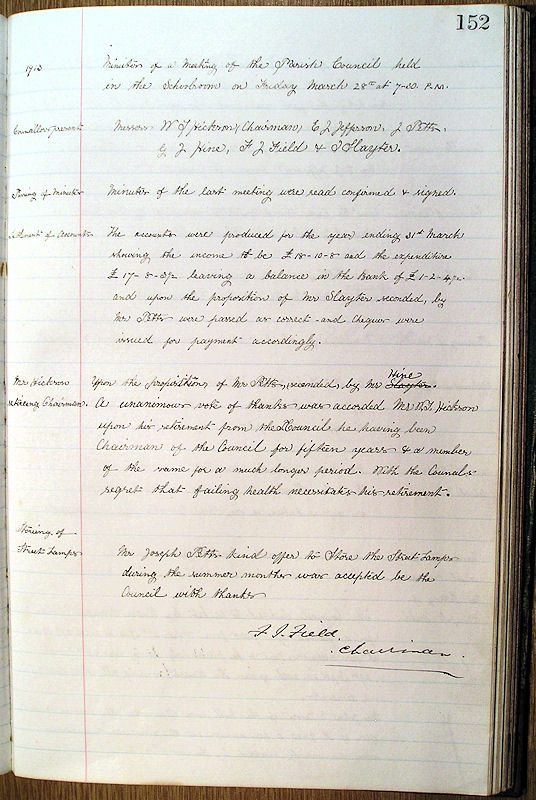 152
1913
Minutes of a Meeting of the Parish Council held
in the Schoolroom on Friday March 28th at 7-30 P.M.
Councillors present
Messrs. W T Hickson, Chairman, E J Jefferson, J Petts,
G J Hine, F J Field & J Slayter.
Passing of Minutes
Minutes of the last meeting were read confirmed & signed.
Settlement of Accounts
The accounts were produced for the year ending 31st March
shewing the income to be £18-10-8 and the expenditure
£17-8-3½ leaving a balance in the Bank of £1-2-4½.
and upon the proposition of Mr Slayter seconded, by
Mr Petts were passed as correct and cheques were
issued for payment accordingly.
Mr Hickson
retiring Chairman.
Upon the proposition, of Mr Petts, seconded, by Mr Slayter. Hine
A unanimous vote of thanks was accorded Mr W.T. Hickson
upon his retirement from the Council he having been
Chairman of the Council for fifteen years & a member
of the same for a much longer period. With the Councils
regret that failing health necessitates his retirement.
Storing of
Street Lamps
Mr Joseph Petts kind offer to Store the Street Lamps
during the summer months was accepted be the
Council with thanks
F. J. Field.
Chairman.